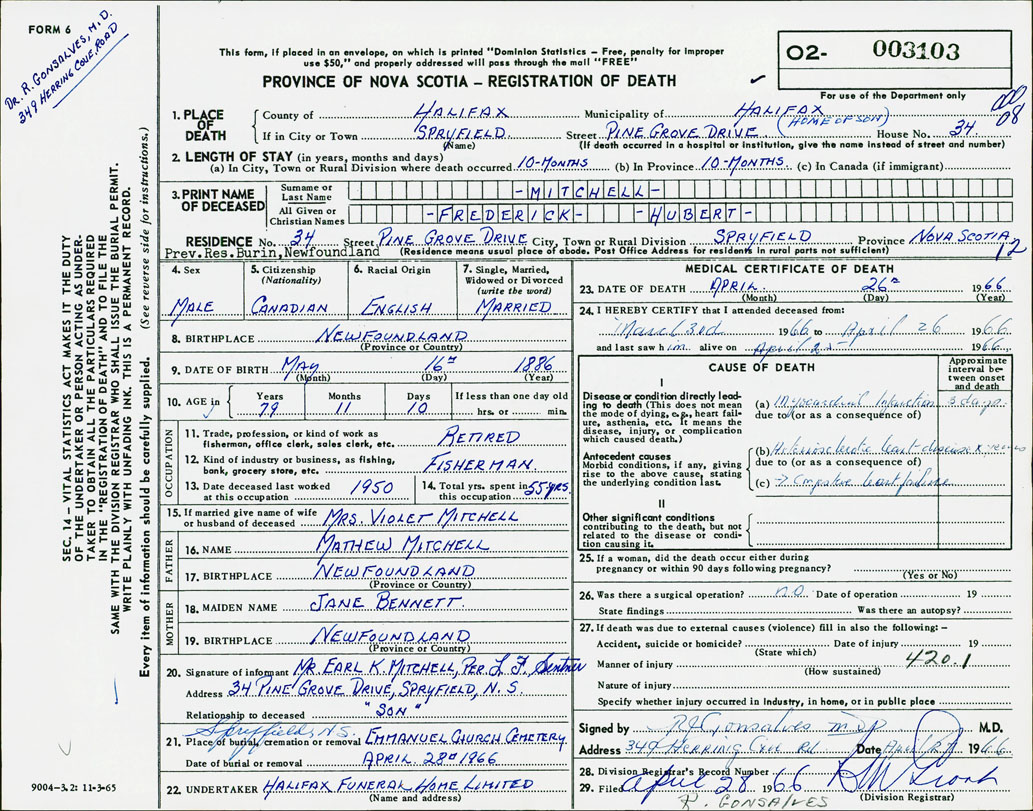 FORM 6
DR. R. GONSALVES, M.D.
349 HERRING COVE ROAD
This form, if placed in an envelope, on which is printed "Dominion Statistics – Free, penalty for improper
use $50," and properly addressed will pass through the mail "FREE"
PROVINCE OF NOVA SCOTIA – REGISTRATION OF DEATH
O2- 003103
For use of the Department only
08
SEC. 14 – VITAL STATISTICS ACT MAKES IT THE DUTY
OF THE UNDERTAKER OR PERSON ACTING AS UNDER-
TAKER TO OBTAIN ALL THE PARTICULARS REQUIRED
IN THE "REGISTRATION OF DEATH" AND TO FILE THE
SAME WITH THE DIVISION REGISTRAR WHO SHALL ISSUE THE BURIAL PERMIT.
WRITE PLAINLY WITH UNFADING INK. THIS IS A PERMANENT RECORD.
Every item of information should be carefully supplied. (See reverse side for instructions.)
1. PLACE OF DEATH
County of HALIFAX Municipality of HALIFAX
(HOME OF SON)
If in City or Town SPRYFIELD Street PINE GROVE DRIVE House No. 34
(Name) (If death occurred in a hospital or institution, give the name instead of street and number)
2. LENGTH OF STAY (in years, months and days)
(a) In City, Town or Rural Division where death occurred 10-MONTHS (b) In Province 10-MONTHS. (c) In Canada (if immigrant)
3. PRINT NAME OF DECEASED
Surname or Last Name -MITCHELL-
All Given or Christian Names -FREDERICK- -HUBERT-
RESIDENCE No. 34 Street PINE GROVE DRIVE City, Town or Rural Division SPRYFIELD Province NOVA SCOTIA
12
Prev.Res.Burin,Newfoundland (Residence means usual place of abode. Post Office Address for residents in rural parts not sufficient)
4. Sex
MALE
5. Citizenship
(Nationality)
CANADIAN
6. Racial Origin
ENGLISH
7. Single, Married,
Widowed or Divorced
(write the word)
MARRIED
8. BIRTHPLACE NEWFOUNDLAND
(Province or Country)
9. DATE OF BIRTH MAY 16th 1886
(Month) (Day) (Year)
10. AGE in Years Months Days If less than one day old
79 11 10 hrs. or min.
OCCUPATION
11. Trade, profession, or kind of work as
fisherman, office clerk, sales clerk, etc. RETIRED
12. Kind of industry or business, as fishing,
bank, grocery store, etc. FISHERMAN.
13. Date deceased last worked
at this occupation 1950
14. Total yrs. spent in
this occupation 55 yrs.
15. If married give name of wife
or husband of deceased MRS. VIOLET MITCHELL
FATHER
16. NAME MATHEW MITCHELL
17. BIRTHPLACE NEWFOUNDLAND
(Province or Country)
MOTHER
18. MAIDEN NAME JANE BENNETT.
19. BIRTHPLACE NEWFOUNDLAND
(Province or Country)
20. Signature of informant MR. EARL K. MITCHELL, PER. L. F. Sentner
Address 34 PINE GROVE DRIVE, SPRYFIELD, N.S.
Relationship to deceased "SON"
Spryfield, N.S.
21. Place of burial, cremation or removal EMMANUEL CHURCH CEMETERY
Date of burial or removal APRIL 28th 1966
22. UNDERTAKER HALIFAX FUNERAL HOME LIMITED
(Name and address)
MEDICAL CERTIFICATE OF DEATH
23. DATE OF DEATH APRIL 26th 1966
(Month) (Day) (Year)
24. I HEREBY CERTIFY that I attended deceased from:
March 3rd 1966 to April 26 1966
and last saw him alive on April 25th 1966
CAUSE OF DEATH
Approximate
interval be-
tween onset
and death
I
Disease or condition directly lead-
ing to death (This does not mean
the mode of dying, e.g., heart fail-
ure, asthenia, etc. It means the
disease, injury, or complication
which caused death.)
(a) Myocardial Infarction 3 days.
due to (or as a consequence of)
Antecedent causes
Morbid conditions, if any, giving
rise to the above cause, stating
the underlying condition last.
(b) heart disease
due to (or as a consequence of)
(c) heart failure
II
Other significant conditions
contributing to the death, but not
related to the disease or condi-
tion causing it.
25. If a woman, did the death occur either during
pregnancy or within 90 days following pregnancy?
(Yes or No)
26. Was there a surgical operation? no. Date of operation 19
State findings Was there an autopsy?
27. If death was due to external causes (violence) fill in also the following:–
Accident, suicide or homicide? Date of injury 19
(State which)
Manner of injury 420.1
(How sustained)
Nature of injury
Specify whether injury occurred in industry, in home, or in public place
Signed by R J Gonsalves M.D.
Address 349 Herring Cove Rd Date 1966
28. Division Registrar's Record Number
29. Filed April 28 1966
(Division Registrar)
R. GONSALVES
9004–3.2: 11-3-65